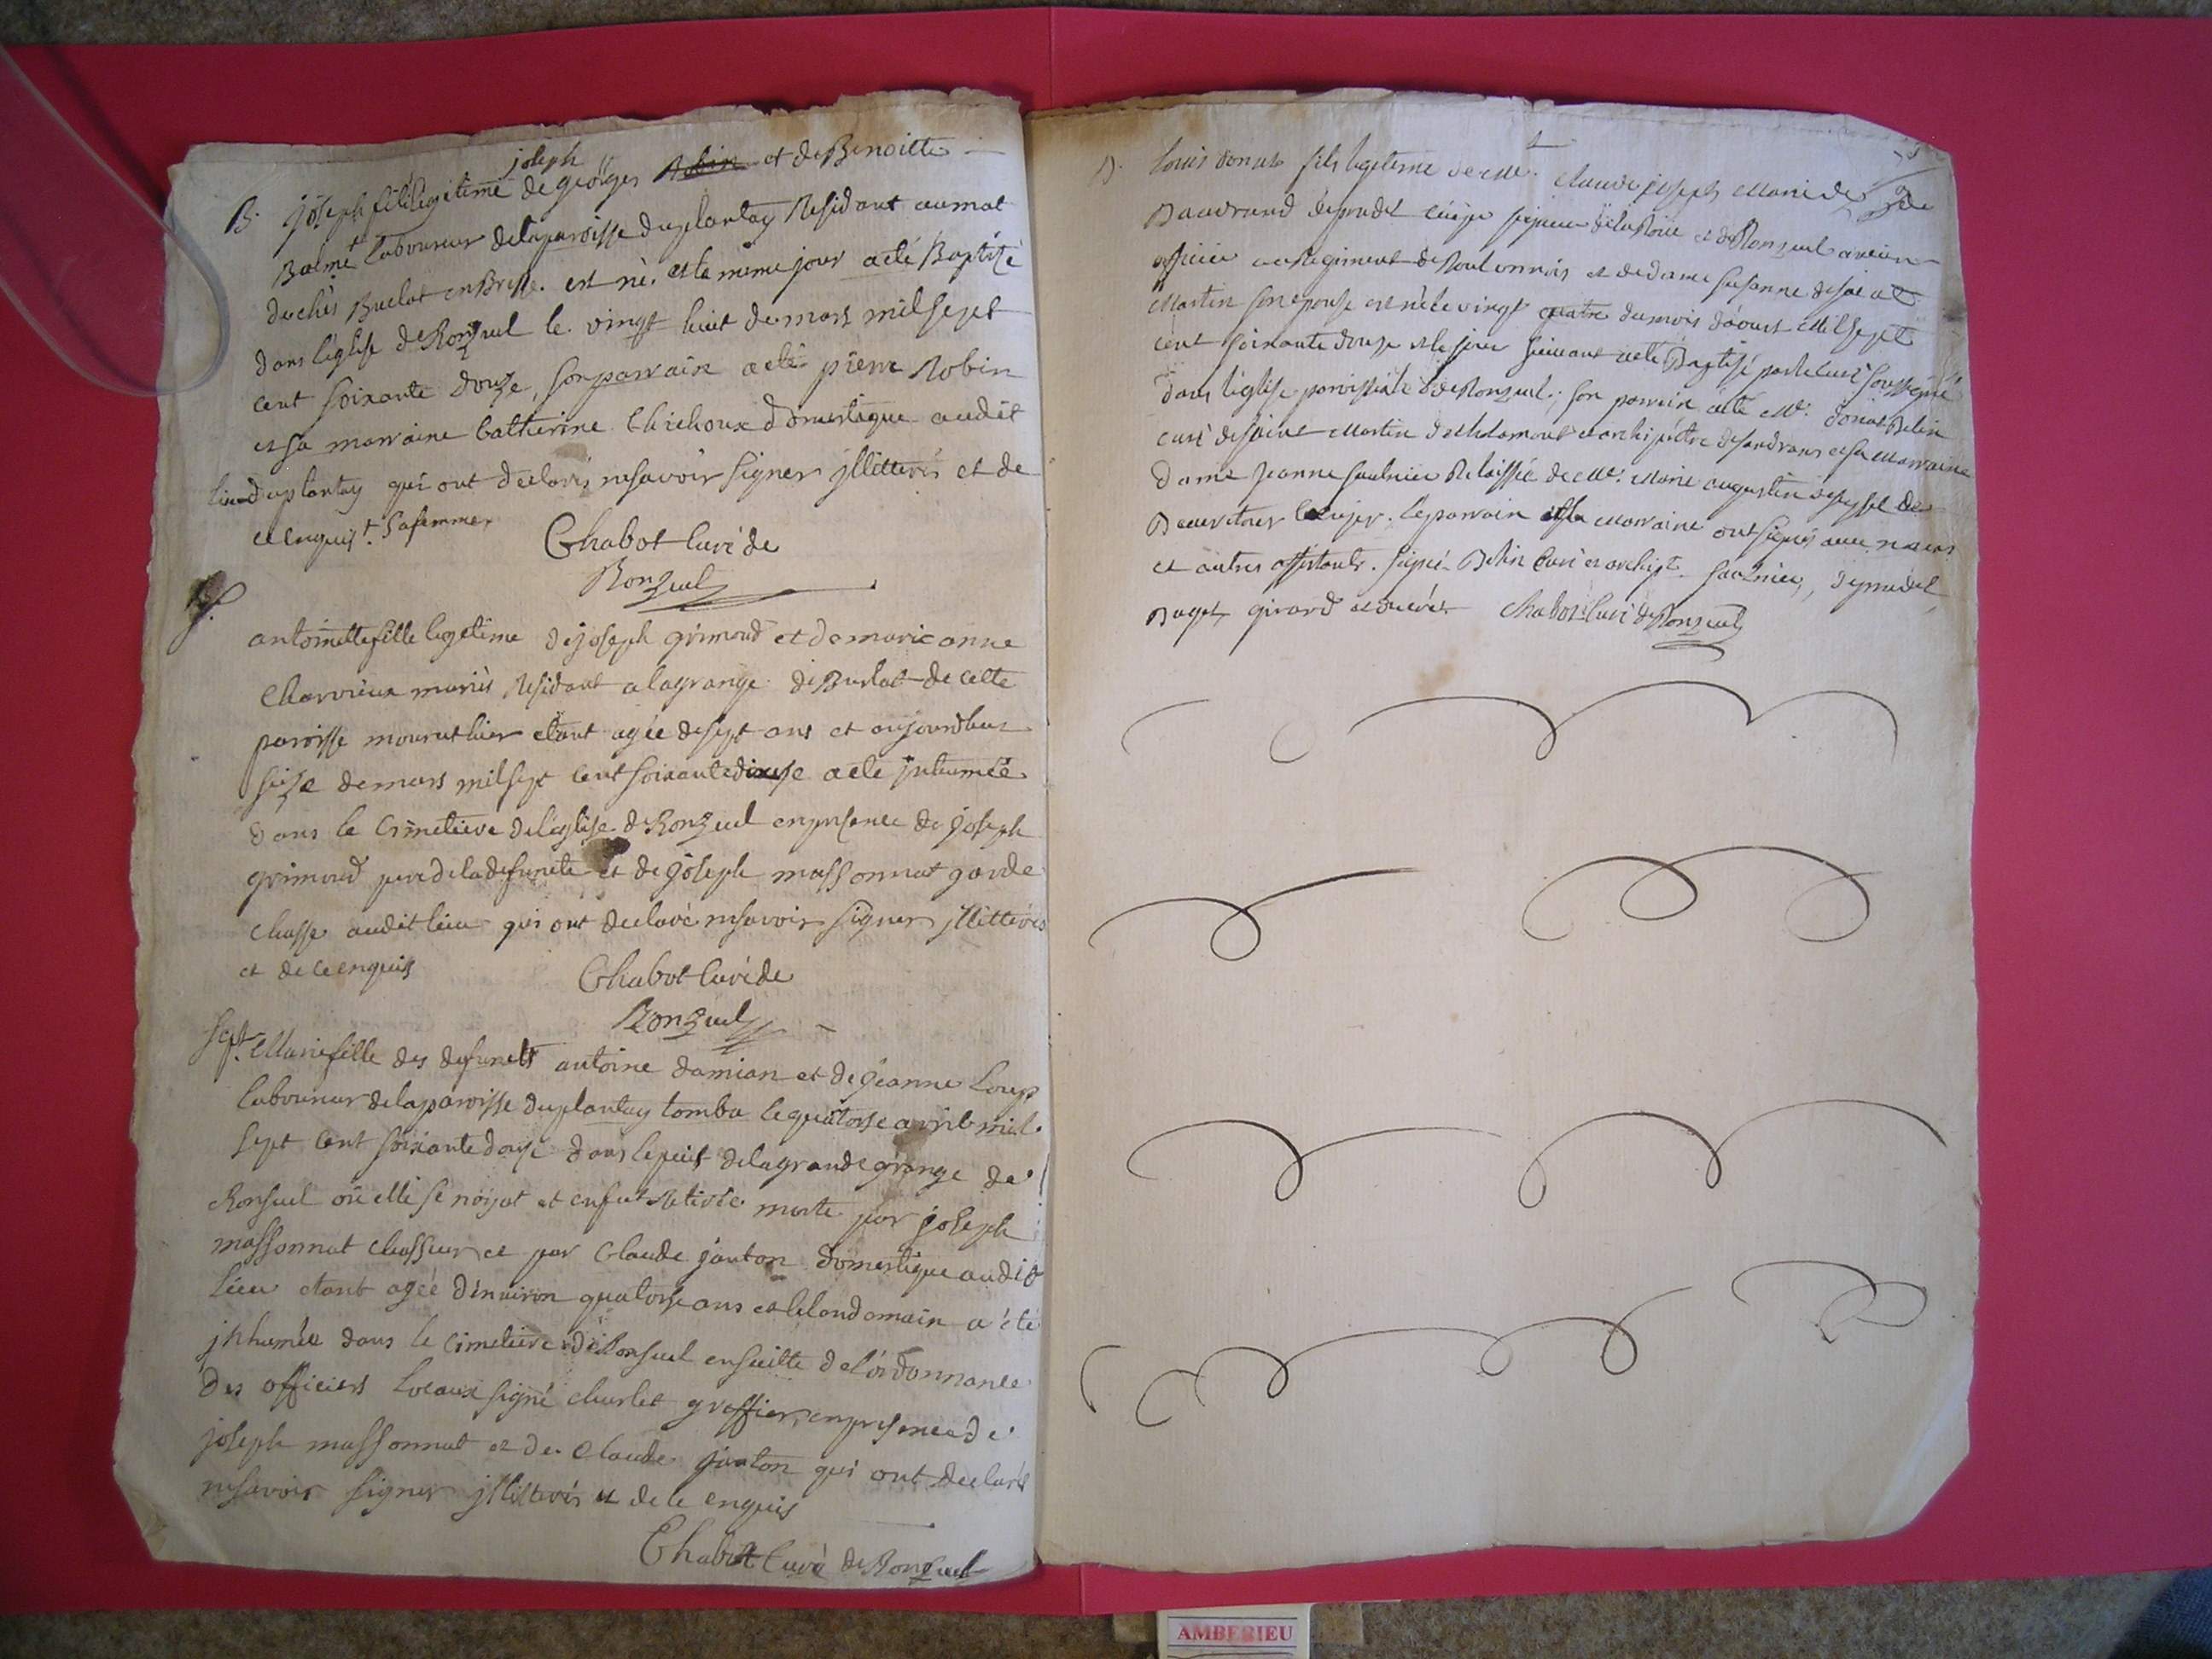 joseph
B. joseph fils legitime de georges Robin et de Benoitte
Balme laboureur de la paroisse du plantay Residant au mat
duchès Buclat en Bresse. est né. et le meme jour a eté Baptisé
dans l'eglise de Ronzuel le vingt huit de mars mil sept
cent soixante douze, son parrain a eté pierre Robin
et sa marraine Catherine Chichoux domestique audit
lieu du plantay qui ont declarés ne savoir signer jllitterés et de
ce enquis sa femme
Chabot Curé de
Ronzuel
S.
antoinette fille legetime de joseph grimoud et de marie anne
Charvieux mariés Residant a la grange de Burlat de cette
paroisse mourut hier etant agée de sept ans et aujourdhui
seize de mars mil sept cent soixante douze a eté jnhumée
dans le Cimetiere de l'eglise de Ronzuel en presence de joseph
grimoud pere de la defuncte et de joseph massonnat garde
chasse audit lieu qui ont declaré ne savoir signer jllitterés
et de ce enquis
Chabot Curé de
Ronzuel
Sept. Marie fille des defuncts antoine damian et de jeanne Loup
laboureur de la paroisse du plantay tomba le quatorse avril mil
sept cent soixante douze dans le puit de la grande grange de
Ronsuel où elle se noyat et en fut Retirée morte par joseph
massonnat chasseur et par Claude janton domestique audit
lieu etant agée d'environ quatorse ans et le landemain a été
jnhumée dans le Cimetiere de Ronsuel ensuitte de l'ordonnance
des officiers locaux signé charlet greffier, en presence de
joseph massonnat et de Claude janton qui ont declarés
ne savoir signer jllitterés et de ce enquis
Chabot Curé de Ronzuel
B. louis donat fils legetime de Mr. Claude joseph Marie de
Baudrand depradel ecuïer seigneur de la Roüe et de Ronzuel ancien
officier au Regiment de Boulonnois et de dame susanne de
Martin son epouse est né le vingt quatre du mois d'aoust Mil sept
cent soixante douze et le jour suivant a eté Baptisé par le curé soussigné
dans l'eglise paroissiale de Ronzuel; son parrain a eté Mr. donat Belin
curé de saint Martin de chalamont et archiprêtre de sandrans et sa Marraine
dame jeanne saulnier Relaissée de Mr. Marie augustin de seyssel de
Beauretour ecuijer. le parrain et la Marraine ont signés avec nous
et autres assistants. signé Belin Curé et archipt. saulnier, depradel
Baget, girard Chabot Curé de Ronzuel
AMBERIEU